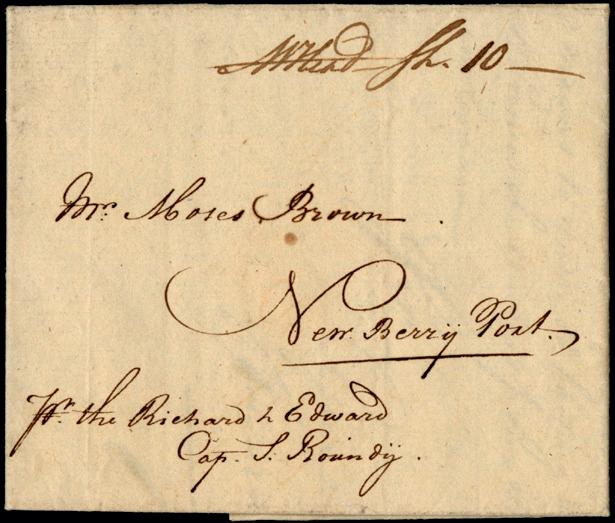 Mhead Sh. 10
Mr. Moses Brown.
New Berrÿ Port.
Pr. the Richard & Edward
Cap. S. Roundÿ.